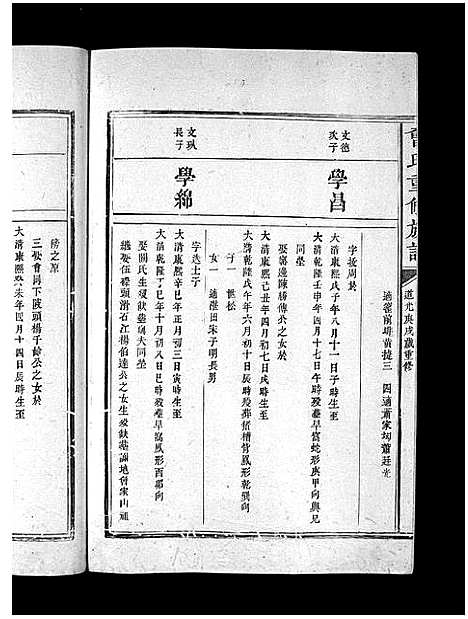 曾氏重修族譜
道光戊戌歲重修
適窰前塅黃捷三 四適蕭家坳蕭廷光
文德
次子
學昌
字拔周於
大清康熙戊子年八月十一日子時生至
大清乾隆壬申年四月十七日午時歿葬早禽蛇形庚甲向與兄
同塋
娶窰邊陳勝傳公之女於
大清康熙己丑年四月初七日戌時生至
大清乾隆戊午年六月初十日辰時歿葬 槽 鳳形乾巽向
子一 世松
女一 適淮田宋子明長男
文玖
長子
學錦
字選士于
大清康熙辛巳年正月初三日寅時生至
大清乾隆丁巳年十月初八日巳時歿葬早窩鳳形酉卯向
娶關氏生歿缺葬與夫同塋
繼娶伍礫頭滑石江楊伯達公之女生歿缺葬論地 家山
勝之原
三娶會同下陂頭楊千餘公之女於
大清康熙癸未年四月十四日辰時生至